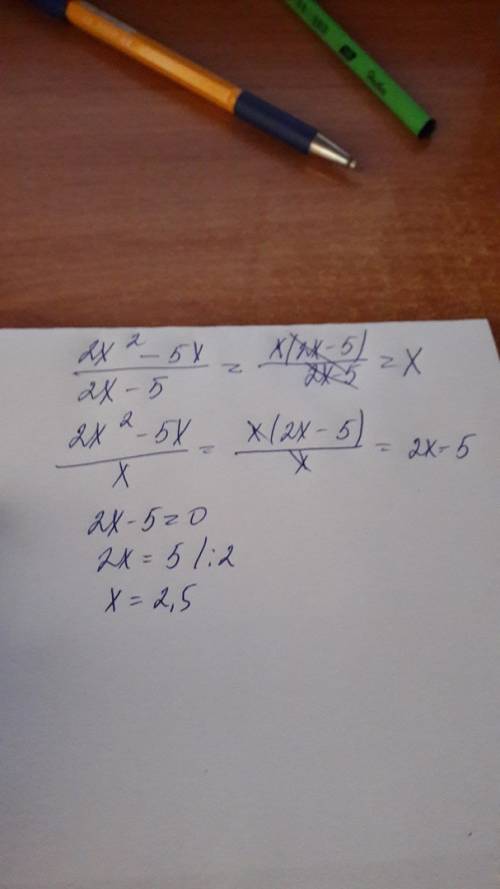 (2x² - 5x)/(2x - 5) = x(2x - 5)/(2x - 5) = x
(2x² - 5x)/x = x(2x - 5)/x = 2x - 5
2x - 5 = 0
2x = 5 /:2
x = 2,5